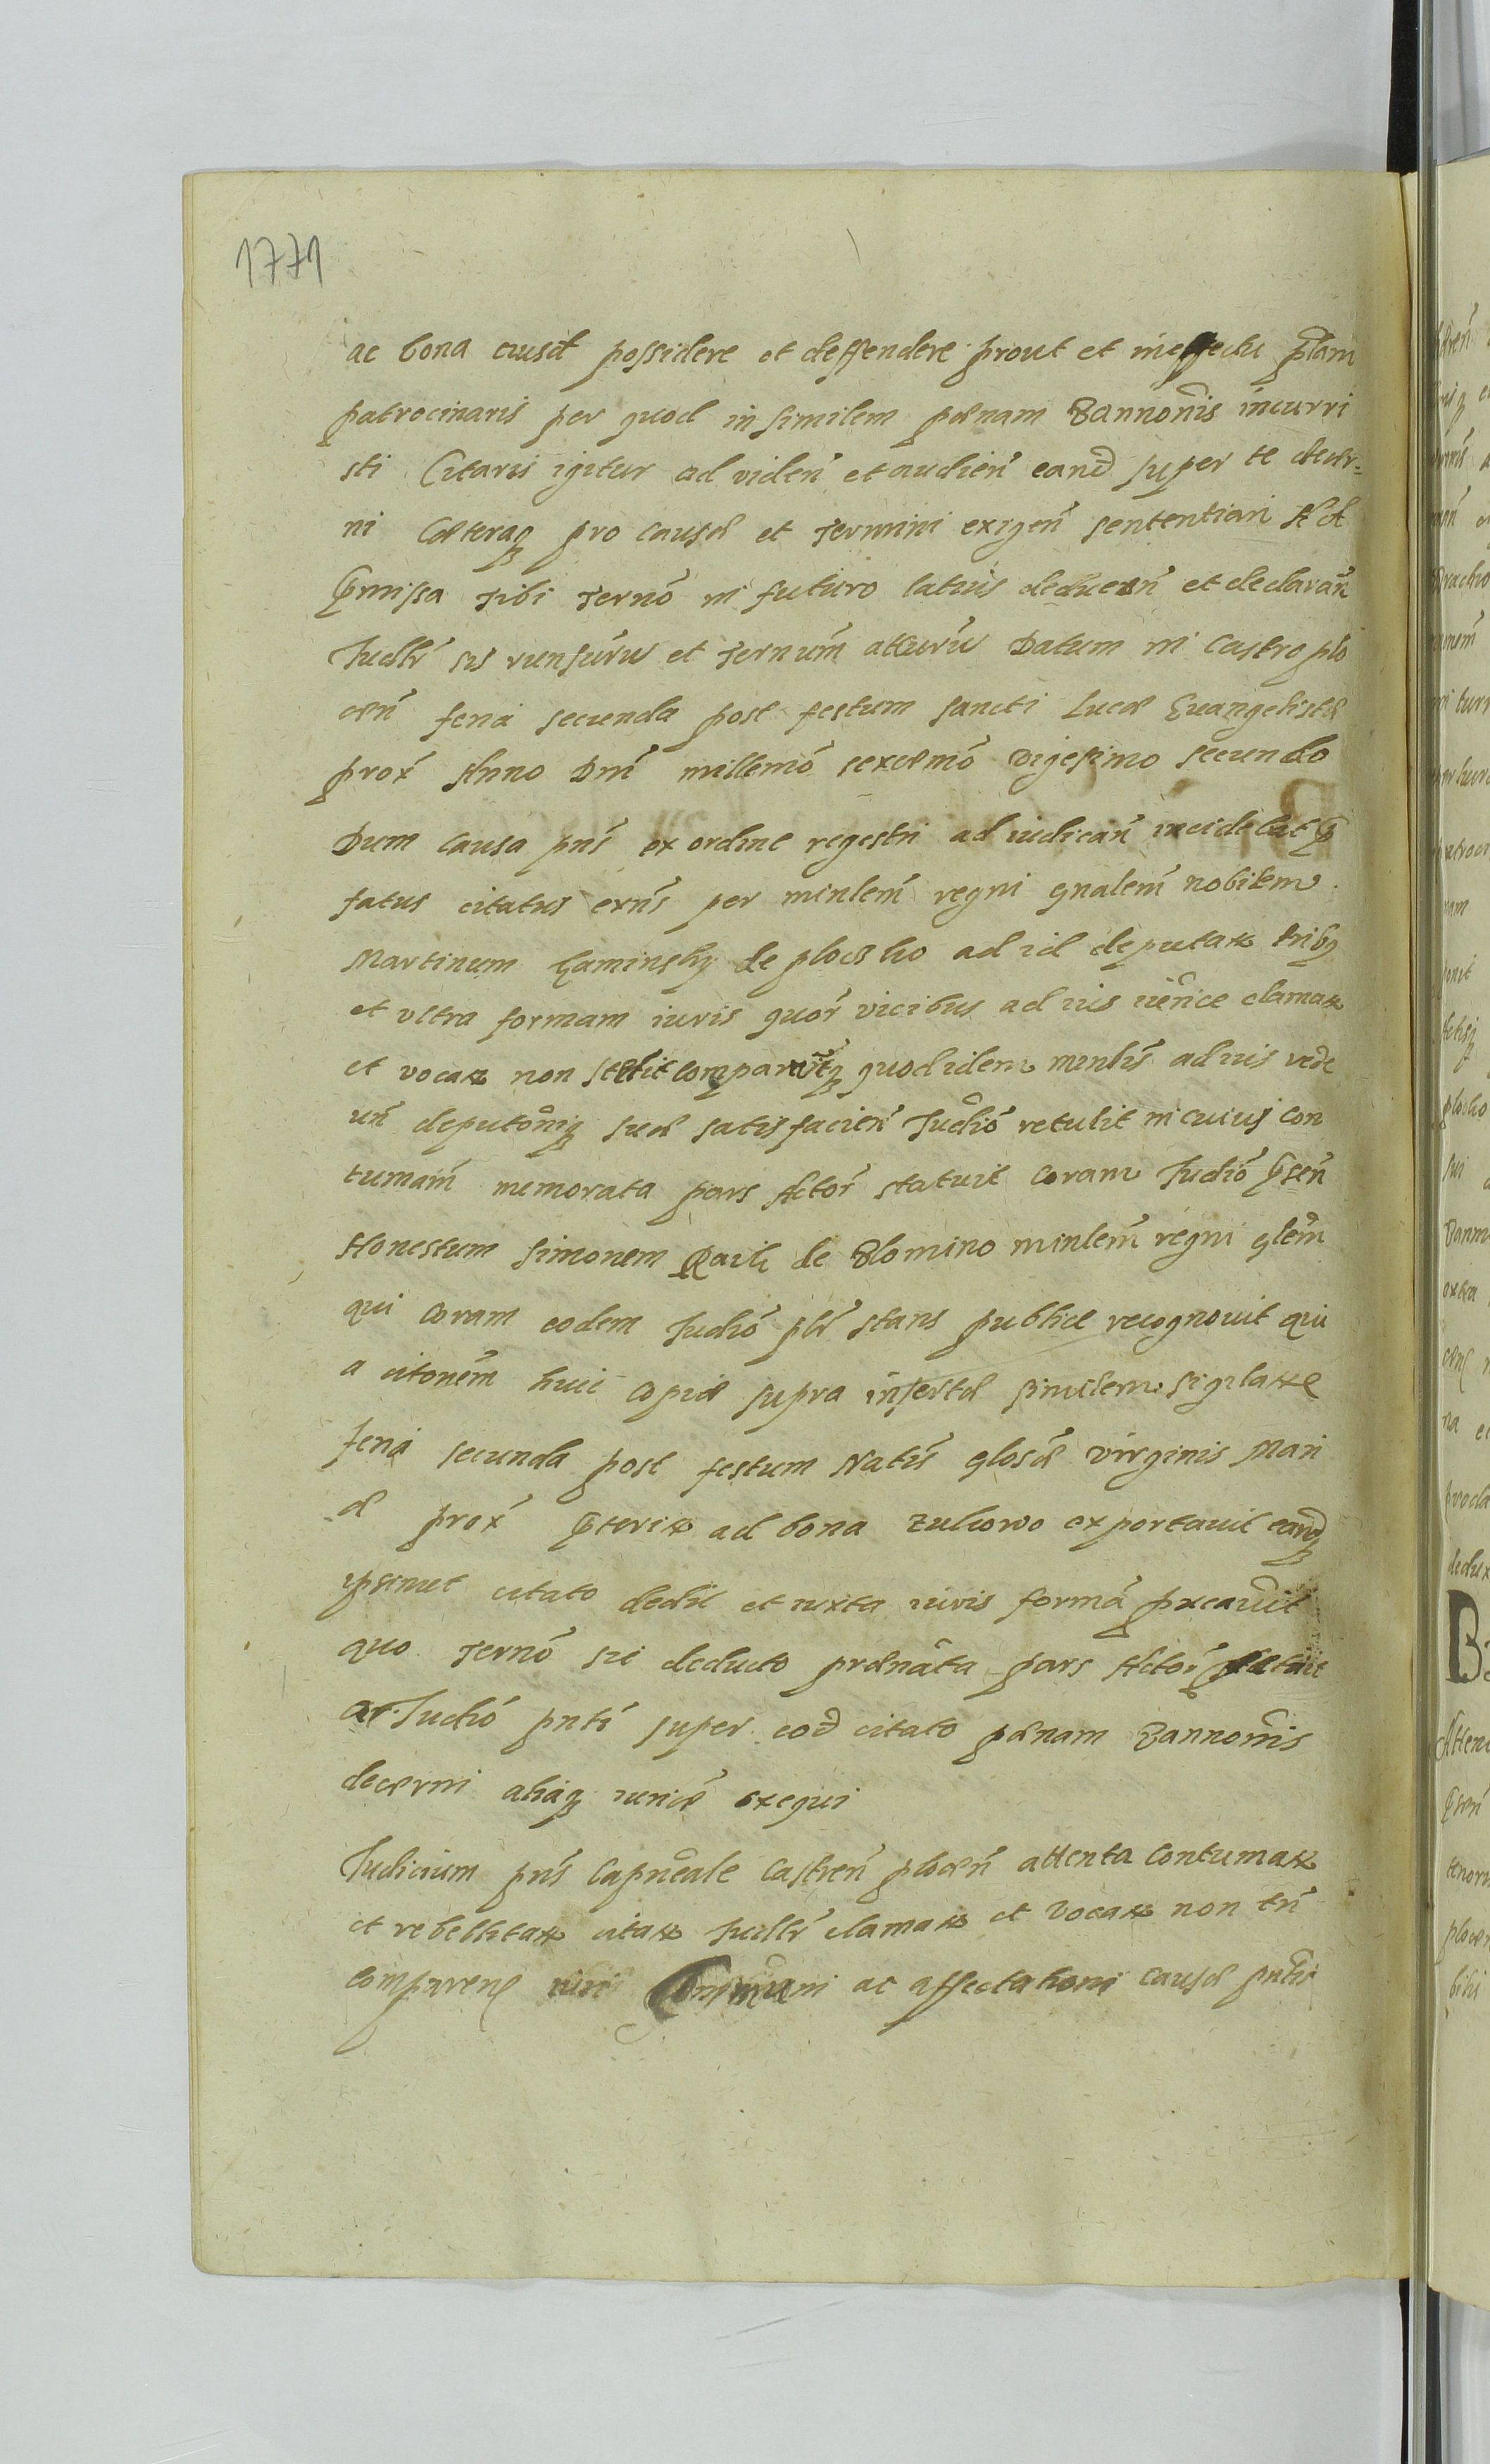 1771
ac bona eiusd possidere et deffendere prout et in effectu palam
patrocinaris per quod in similem pœnam Bannōnis incurri
sti Citaris igitur ad viden̄ et audien̄ eand super te decer-
ni cæteraq pro causæ et termini exigen̄ sententiari Ad
præmissa tibi ternō in futuro latius deducen̄ et declaran̄
Judlr̄ sis runsurus et ternum̄ atturus Datum in Castro plo
cen̄ feria secunda post festum sancti Lucæ Euangelistæ
prox̄ Anno Dnī millemō sexcemō vigesimo secundo
Dum causa pn̄s ex ordine regestri ad iudican̄ incidebat præ
fatus citatus exn̄s per minlem̄ regni gnalem̄ nobilem
Martinum Kaminsky de plocsko ad id deputat tribq
et vltra formam iuris quor̄ vicibus ad ius iurīce clamat
et vocat non stetit comparuitq quod idem minlis̄ ad ius vede
un̄ deputōniq suæ satisfacien̄ Judiō retulit in cuius con
tumam̄ memorata pars Actor̄ statuit coram Judiō præsen̄
Honestum Simonem de Blomino minlem̄ regni glem̄
qui coram eodem Judiō plr̄ stans publice recognouit qui
a citonem̄ huic copiæ supra insertæ similem sigilat
feria secunda post festum Natīs glosæ virginis Mari
æ prox̄ præterit ad bona Zukowo exportauit eandq
ipsimet citato dedit et iuxta iuris formā præcauit
quo ternō sic deducto prænāta pars Actor̄
a Judiō pntī super eod citato pœnam Bannonīs
decerni aliaq iurice exequi
Judicium pn̄s Capnēale Castren̄ plocen̄ attenta contumat
et rebellitat citat Judlr̄ clamat et vocat non tn̄
comparen iuri communi ac affectationi causæ pntis